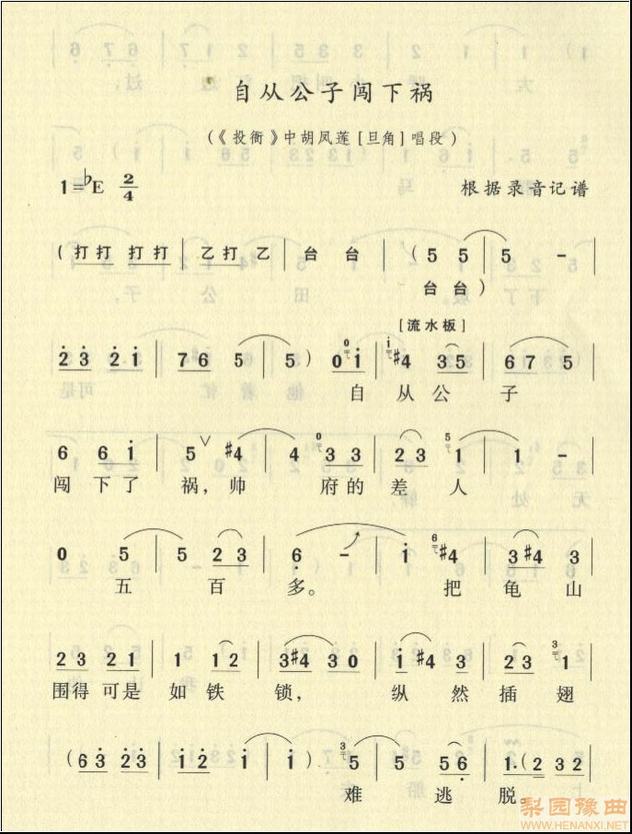 自从公子闯下祸
(《投衙》中胡凤莲[旦角]唱段)
1=♭E 2/4 根据录音记谱
( 打打 打打 | 乙打 乙 | 台 台 | ( 5 5 | 5 - |
台 台 )
[流水板]
2̇3̇ 2̇1̇ | 76 5 | 5 ) 0 1̇ | #4 35 | 675 |
自 从 公 子
6 6 1̇ | 5 ∨ #4 | 4 3 3 | 2 3 1 | 1 - |
闯 下 了 祸, 帅 府 的 差 人
0 5 | 5 2 3 | 6̣ - | 1̇ #4 | 3 #4 3 |
五 百 多。 把 龟 山
2 3 2 1 | 1 1 2 | 3 #4 3 0 | 1 #4 | 2 3 1 |
围得 可是 如 铁 锁, 纵 然 插 翅
( 6 3̇ 2̇3̇ | 1̇ 2̇ | 1̇ 1̇ ) | 5 5 6̣ | 1. ( 2̇ 3̇2̇ |
难 逃 脱。
梨园豫曲
WWW.HENANXI.NET